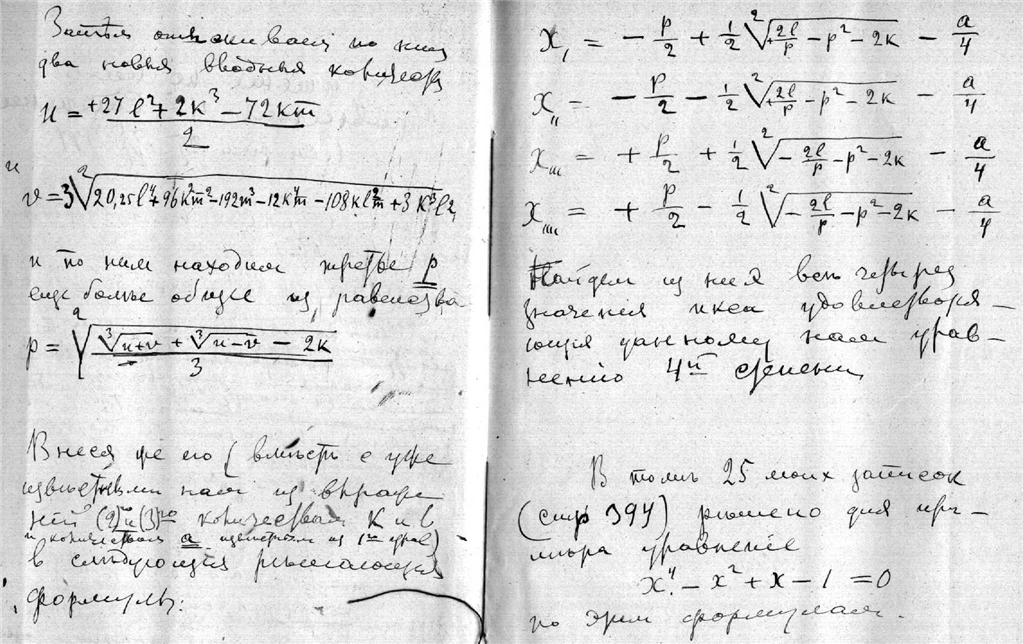 Затѣм отыскиваем по ним
два новыя вводныя количеств
u = (+27l² + 2k³ − 72km) / 2
и
v = 3 ²√(20,25l⁴ + 96k²m² − 192m³ − 12k⁴m − 108kl²m + 3k³l²)
и по ним находим третье p
еще болѣе общее из равенства
p = ²√((³√(u+v) + ³√(u−v) − 2k) / 3)
Внеся же его (вмѣстѣ с уже
извѣстными нам из выраже
ний (2)го и (3)го количествам k и l
и количеством a из 1го урав)
в слѣдующия рѣшающия
формулы:
X, = − p/2 + 1/2 ²√(+2l/p − p² − 2k) − a/4
X,, = − p/2 − 1/2 ²√(+2l/p − p² − 2k) − a/4
X,,, = + p/2 + 1/2 ²√(−2l/p − p² − 2k) − a/4
X,,,, = + p/2 − 1/2 ²√(−2l/p − p² − 2k) − a/4
Найдем из нея всѣ четыре
значения икса удовлетворя–
ющия данному нам урав–
нению 4й степени
В томѣ 25 моих записок
(стр 394) рѣшено для при–
мѣра уравнение
x⁴ − x² + x − 1 = 0
по этим формулам.